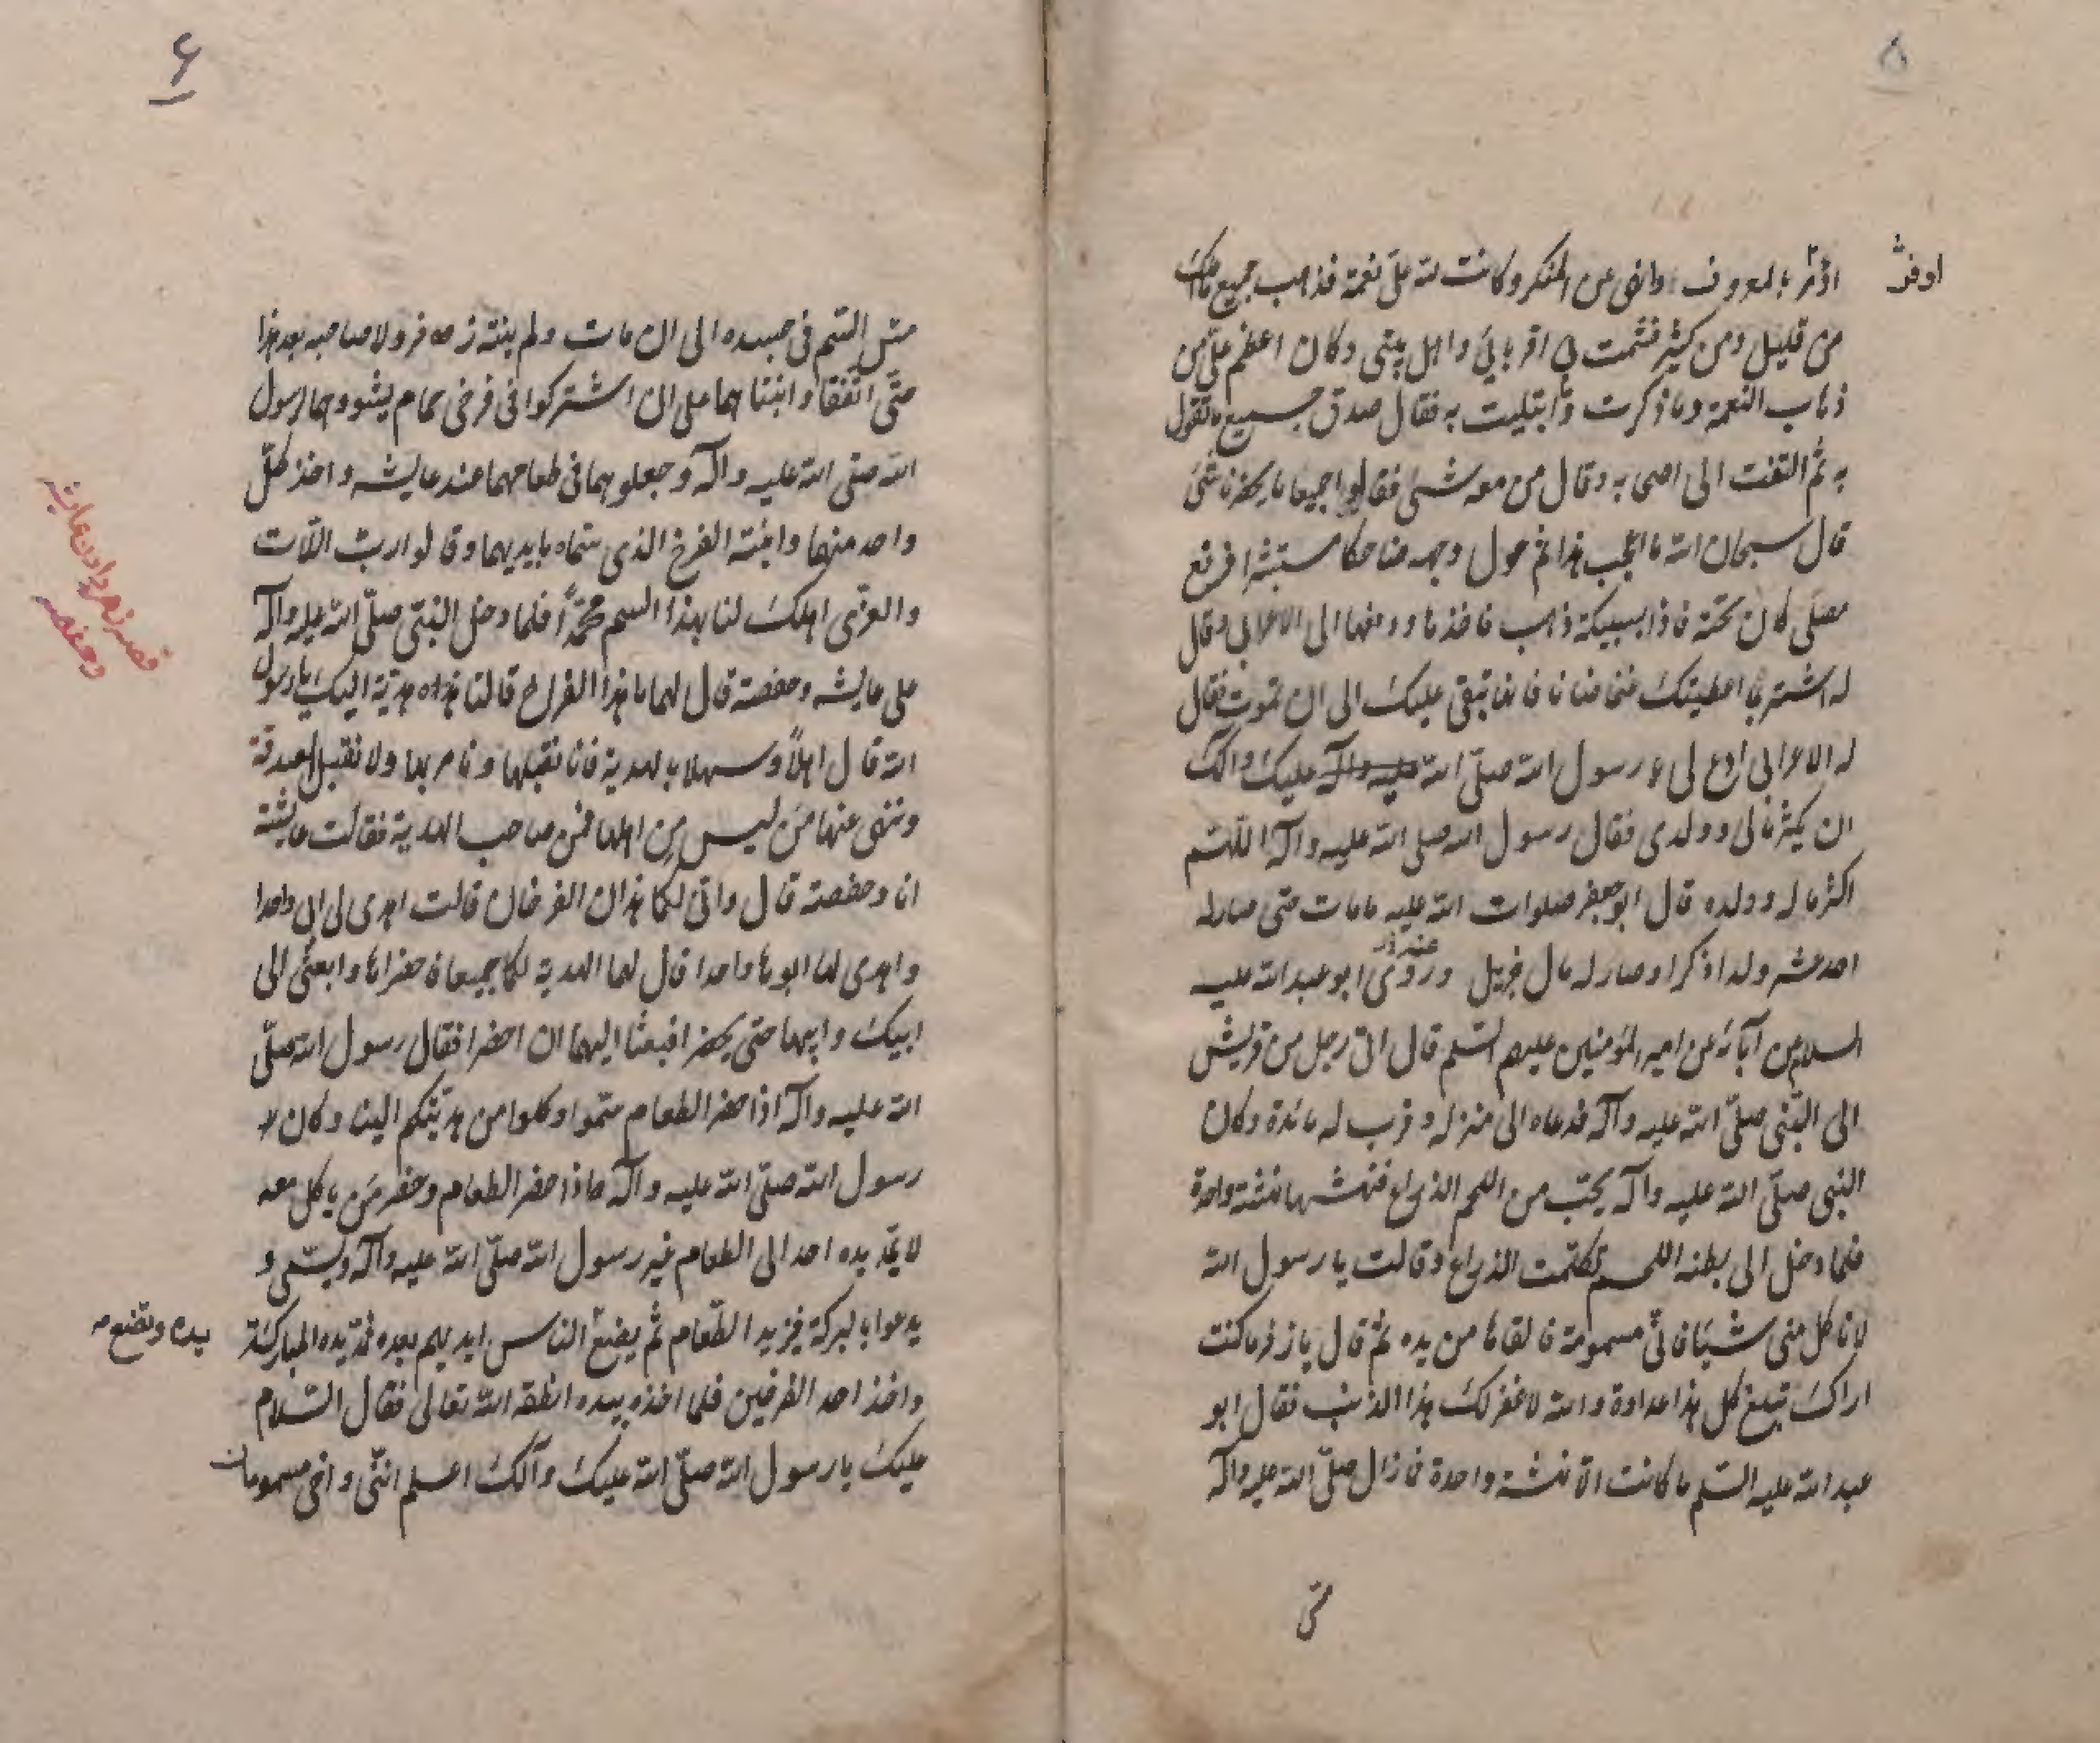 ۸
اوفرّ
اؤمر بالمعروف وانهى عن المنكر وكانت لله علىّ نعمة فذهب جميع مالك
من قليل ومن كثير فشمت بى اقربائى واهل بيتى وكان اعظم علىّ من
ذهاب النعمة وما ذكرت وابتليت به فقال صدق جميع ما تقول
به ثم التفت الى اصحابه وقال من معه شئ فقالوا جميعا ما يحضرنا شئ
قال سبحان الله ما اعجب هذا ثم حول وجهه ضاحكا مستبشرا فرفع
مصلى كان تحته فاذا بسبيكة ذهب فاخذها ودفعها الى الاعرابى وقال
له اشتر بما اعطيتك غنما ضانا فانها تبقى عليك الى ان تموت فقال
له الاعرابى ادع لى يا رسول الله صلّى الله عليه وآله عليك وآلك
ان يكثر مالى وولدى فقال رسول الله صلى الله عليه وآله اللّهم
اكثر ماله وولده قال ابو جعفر صلوات الله عليه ما مات حتى صار له
احد عشر ولدا ذكرا وصار له مال جزيل وروى ابو عبد الله عليه
السلام عن آبائه عن امير المؤمنين عليهم السّلم قال اتى رجل من قريش
الى النّبى صلّى الله عليه وآله فدعاه الى منزله وقرب له مائدة وكان
النبى صلّى الله عليه وآله يحبّ من اللحم الذراع فنهشها نهشة واحدة
فلما دخل الى بطنه اللحم تكلمت الذراع وقالت يا رسول الله
لا تاكل منى شيئا فانّى مسمومة فالقاها من يده ثم قال يا زفر ما كنت
اراك تبلغ كل هذا عداوة والله لا غفر لك هذا الذنب فقال ابو
عبد الله عليه السّلم ما كانت الا نهشة واحدة فما زال صلّى الله عليه وآله
حتى
۶
مسّ السّم فى جسده الى ان مات ولم ينته زفر ولا صاحبه بعد هذا
حتّى اتّفقا وابنتاهما على ان اشتركوا فى فرخى حمام يشووهما لرسول
الله صلّى الله عليه وآله وجعلوهما فى طعامهما عند عايشه واخذ كلّ
واحد منهما وابنته الفرخ الذى سمّاه بايديهما وقالوا ربّ اللّات
والعزّى اهلك لنا بهذا السم محمّداً فلما دخل النبّى صلّى الله عليه وآله
على عايشه وحفصة قال لهما ما هذا الفراخ قالتا هذه هديّة اليك يا رسول
الله قال اهلاً وسهلا بالهدية فانا نقبلها ونامر بها ولا نقبل الصدقة
وننهى عنها مَن ليس مِن اهلها فمن صاحب الهدية فقالت عايشة
انا وحفصة قال وانّى لكما هذان الفرخان قالت اهدى لى ابى واحدا
واهدى لها ابوها واحدا قال لها الهدية لكما جميعا فاحضراها وابعثى الى
ابيك وابيها حتى يحضرا فبعثا اليهما ان احضرا فقال رسول الله صلّى
الله عليه وآله اذا حضر الطعام سمّوا وكلوا من هديّتكم الينا وكان
رسول الله صلّى الله عليه وآله اذا حضر الطعام وحضر مَن ياكل معه
لا يمدّ يده احد الى الطعام غير رسول الله صلّى الله عليه وآله ويسمّى و
يدعوا بالبركة فيزيد الطّعام ثم يضع النّاس ايديهم بعده فمدّ يده المباركة
يده وتضع
واخذ احد الفرخين فلما اخذه بيده انطقه الله تعالى فقال السّلام
عليك يا رسول الله صلّى الله عليك وآلك اعلم انّنى واخى مسمومان
قصه زهر دادن عايشه
وحفصه